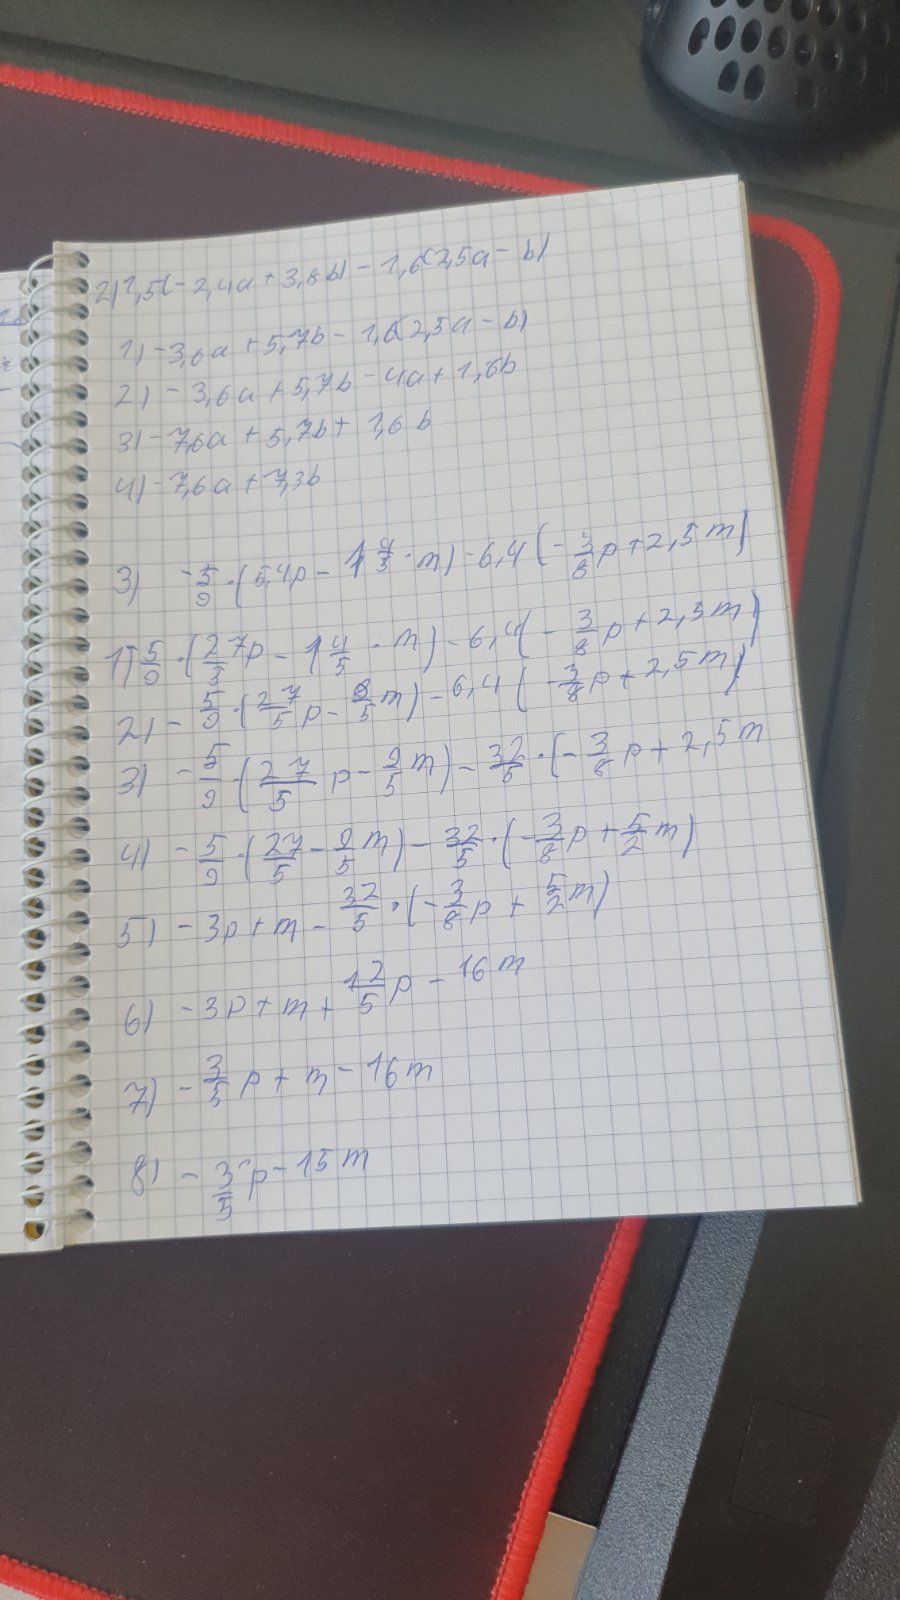 2) 1,5(-2,4a + 3,8b) - 1,6(2,5a - b)
1) -3,6a + 5,7b - 1,6(2,5a - b)
2) -3,6a + 5,7b - 4a + 1,6b
3) -7,6a + 5,7b + 1,6b
4) -7,6a + 7,3b
3) -5/9 · (5,4p - 1 4/5 · m) - 6,4(-3/8p + 2,5m)
1) -5/9 · (27/5p - 1 4/5 · m) - 6,4(-3/8p + 2,5m)
2) -5/9 · (27/5p - 9/5m) - 6,4(-3/8p + 2,5m)
3) -5/9 · (27/5 p - 9/5m) - 32/5 · (-3/8p + 2,5m
4) -5/9 · (27/5 - 9/5m) - 32/5 · (-3/8p + 5/2m)
5) -3p + m - 32/5 · (-3/8p + 5/2m)
6) -3p + m + 12/5p - 16m
7) -3/5p + m - 16m
8) -3/5p - 15m